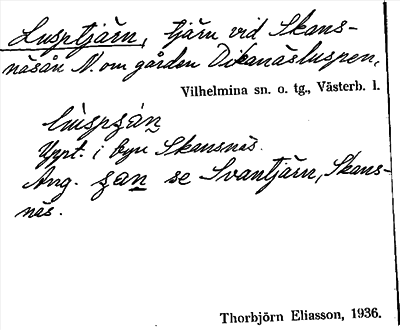 Lusptjärn, tjärn vid Skans-
näsån N. om gården Dikanäsluspen,
Vilhelmina sn. o. tg., Västerb. l.
Uppt. i byn Skansnäs.
Ang. se Svantjärn, Skans-
näs.
Thorbjörn Eliasson, 1936.